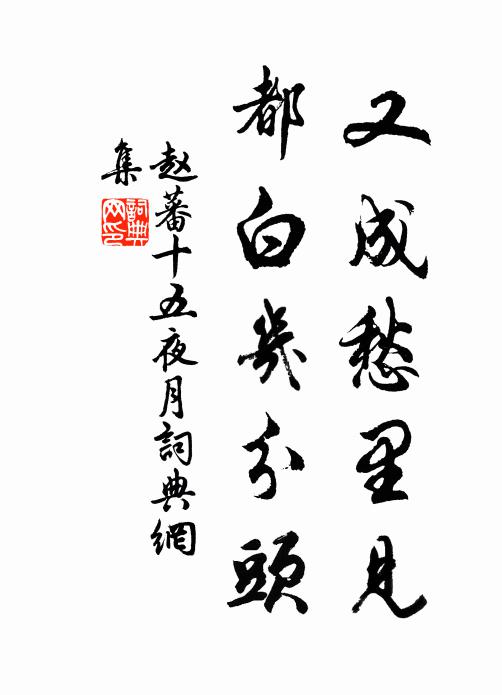 又成愁里見
都白幾分頭
赵蕃十五夜月詞典網
集
詞典
网印